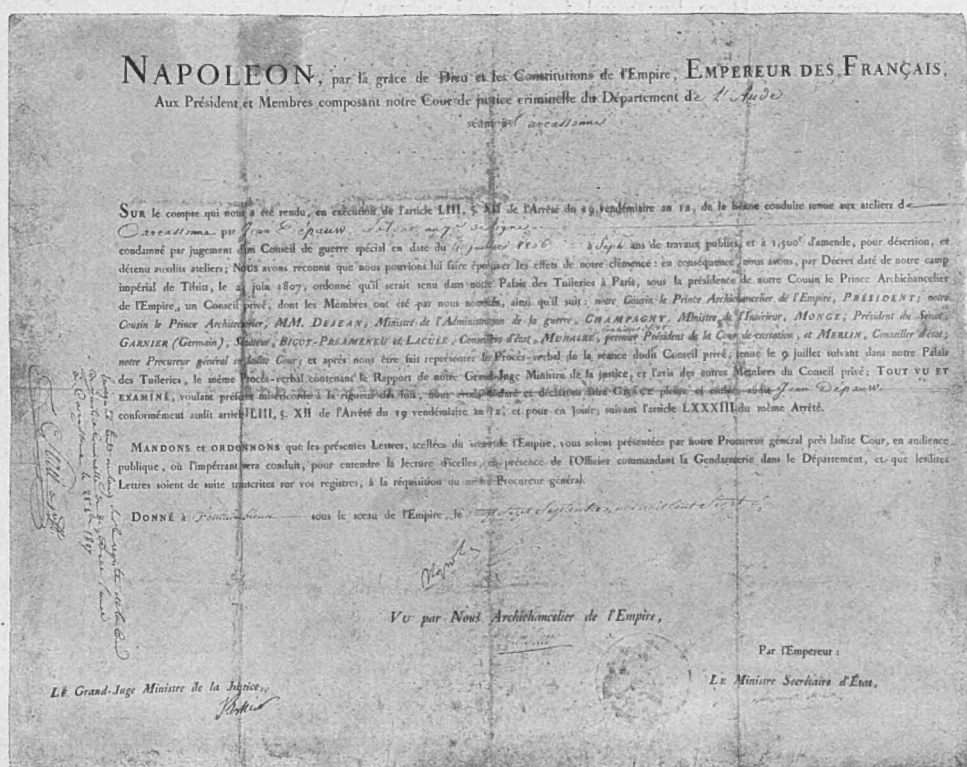 NAPOLEON, par la grâce de Dieu et les Constitutions de l'Empire, EMPEREUR DES FRANÇAIS,
Aux Président et Membres composant notre Cour de justice criminelle du Département de l'Aude
séant à Carcassonne
SUR le compte qui nous a été rendu, en exécution de l'article LIII, §. XII de l'Arrêté du 19 vendémiaire an 12, de la bonne conduite tenue aux ateliers de
Carcassonne par Jean Depauw,
condamné par jugement d'un Conseil de guerre spécial en date du 1806 à Sept ans de travaux publics, et à 1,500f d'amende, pour désertion, et
détenu auxdits ateliers; Nous avons reconnu que nous pouvions lui faire éprouver les effets de notre clémence : en conséquence, nous avons, par Décret daté de notre camp
impérial de Tilsit, le juin 1807, ordonné qu'il serait tenu dans notre Palais des Tuileries à Paris, sous la présidence de notre Cousin le Prince Archichancelier
de l'Empire, un Conseil privé, dont les Membres ont été par nous nommés, ainsi qu'il suit : notre Cousin le Prince Archichancelier de l'Empire, PRÉSIDENT; notre
Cousin le Prince Architrésorier, MM. DEJEAN, Ministre de l'Administration de la guerre, CHAMPAGNY, Ministre de l'Intérieur, MONGE, Président du Sénat,
GARNIER (Germain), Sénateur, BIGOT-PRÉAMENEU et LACUÉE, Conseillers d'état, MURAIRE, premier Président de la Cour de cassation, et MERLIN, Conseiller d'état,
notre Procureur général en ladite Cour; et après nous être fait représenter le Procès-verbal de la séance dudit Conseil privé, tenue le 9 juillet suivant dans notre Palais
des Tuileries, le même Procès-verbal contenant le Rapport de notre Grand-Juge Ministre de la justice, et l'avis des autres Membres du Conseil privé; TOUT VU ET
EXAMINÉ, voulant préférer miséricorde à la rigueur des lois, nous avons déclaré et déclarons faire GRÂCE pleine et entière audit Jean Depauw
conformément audit article LIII, §. XII de l'Arrêté du 19 vendémiaire an 12, et pour en jouir, suivant l'article LXXXIII du même Arrêté.
MANDONS et ORDONNONS que les présentes Lettres, scellées du sceau de l'Empire, vous soient présentées par notre Procureur général près ladite Cour, en audience
publique, où l'impétrant sera conduit, pour entendre la lecture d'icelles, en présence de l'Officier commandant la Gendarmerie dans le Département, et que lesdites
Lettres soient de suite transcrites sur vos registres, à la réquisition du même Procureur général.
DONNÉ à Fontainebleau sous le sceau de l'Empire, le Septembre mil huit cent Sept
VU par Nous Archichancelier de l'Empire,
Par l'Empereur :
LE Grand-Juge Ministre de la Justice,
LE Ministre Secrétaire d'État,